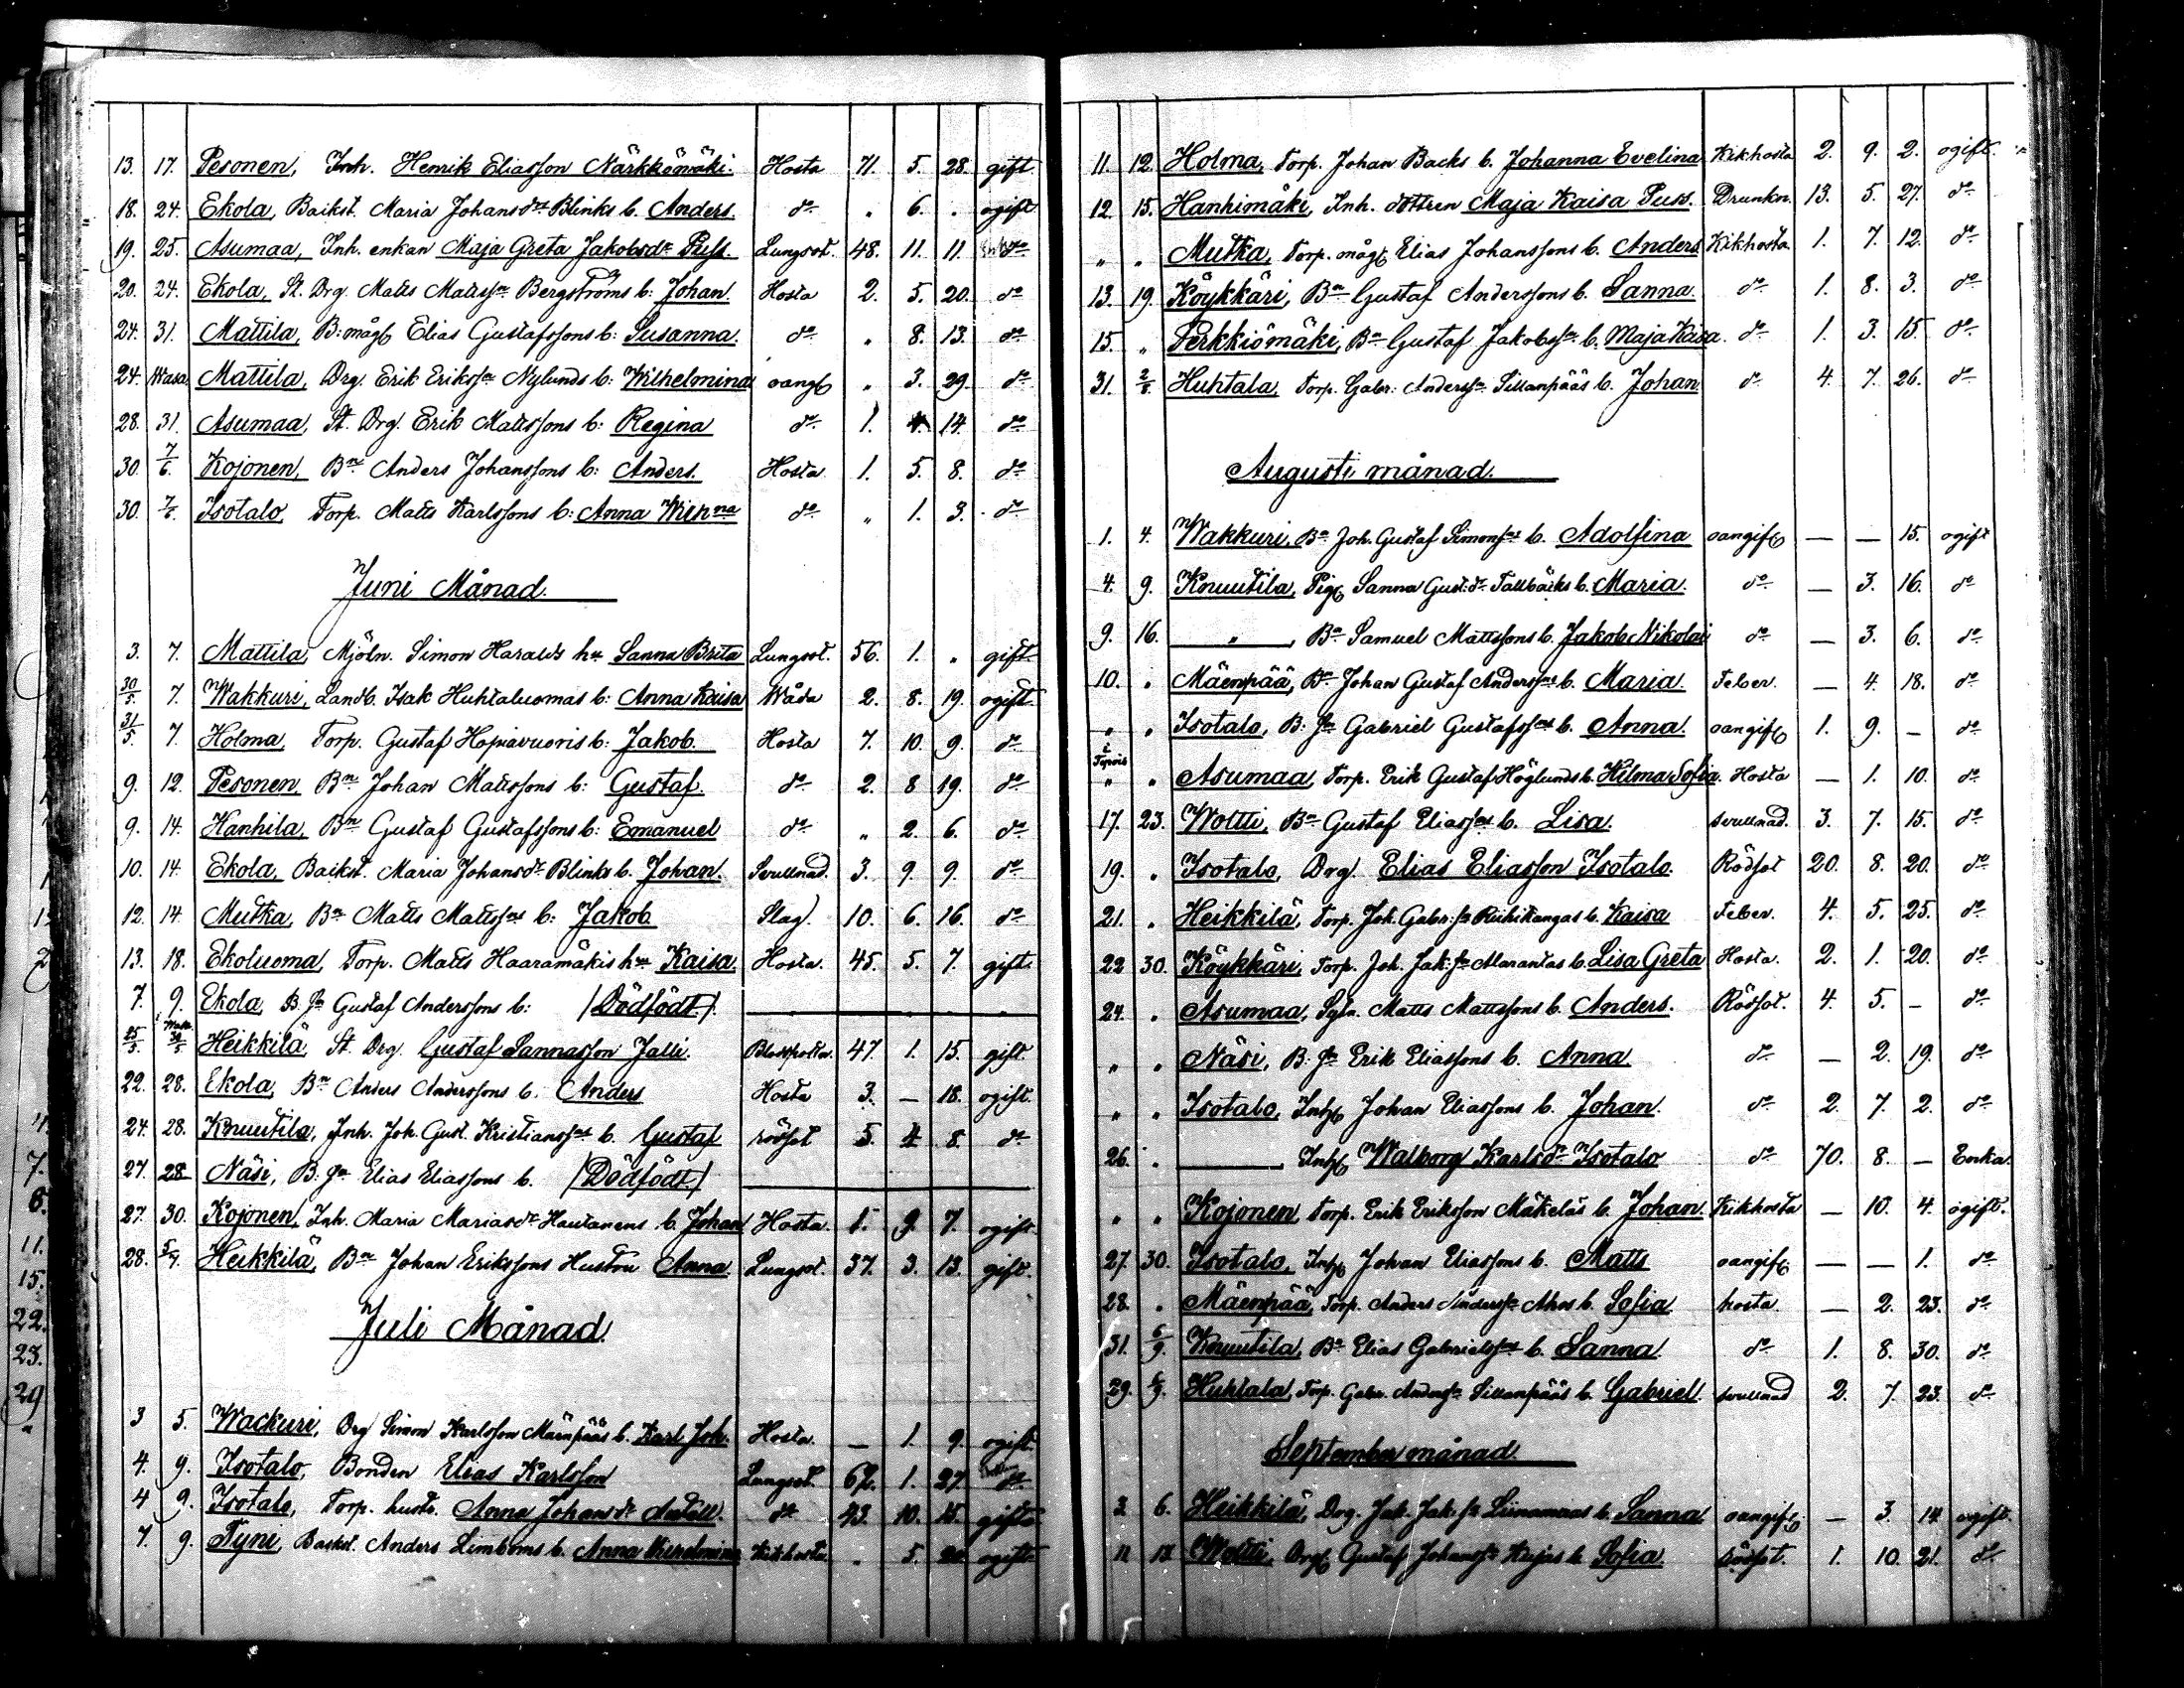 13. 17. Pesonen, Inh. Henrik Eliasson Närkkömäki. Hosta 71. 5. 28. gift
18. 24. Ekola, Backst. Maria Johansdr Blinks b. Anders. do " 6. . ogift
19. 25. Asumaa, Inh. enkan Maja Greta Jakobsdr Puss. Lungsot. 48. 11. 11. Enka
20. 24. Ekola, St. Drg. Matts Mattsson Bergströms b: Johan. Hosta 2. 5. 20. do
24. 31. Mattila, B: måg Elias Gustafssons b: Susanna. do " 8. 13. do
24. Wasa. Mattila, Drg. Erik Eriksson Nylunds b: Wilhelmina oangf " 3. 29. do
28. 31. Asumaa, St. Drg. Erik Mattssons b: Regina do 1. 4. 14. do
30. 7/6. Kojonen, Bn Anders Johanssons b: Anders. Hosta 1. 5. 8. do
30. 7/6. Isotalo, Torp. Matts Karlssons b: Anna Wilhna do " 1. 3. do
Juni Månad.
3. 7. Mattila, Mjöln. Simon Haralds hu Sanna Brita Lungsot. 56. 1. " gift.
30/5. 7. Wakkuri, Landb. Isak Huhtaluomas b: Anna Kaisa Wåda 2. 8. 19. ogift.
31/5. 7. Holma, Torp. Gustaf Hojsavuoris b: Jakob. Hosta 7. 10. 9. do
9. 12. Pesonen, Bn Johan Mattssons b: Gustaf. do 2. 8 19. do
9. 14. Hanhila, Bn Gustaf Gustafssons b: Emanuel do " 2. 6. do
10. 14. Ekola, Backst. Maria Johansdr Blinks b. Johan. Svullnad. 3. 9. 9. do
12. 14. Mutka, Bn Matts Mattssons b: Jakob Slag. 10. 6. 16. do
13. 18. Ekoluoma, Torp. Matts Haaramäkis hu Kaisa. Hosta. 45. 5. 7. gift.
7. 9. Ekola, B. Sn Gustaf Anderssons b: (Dödfödt.)
25/5. Wasa 30/5 Heikkilä, St. Drg. Gustaf Sannasson Jalli. 47. 1. 15. gift.
22. 28. Ekola, Bn Anders Anderssons b: Anders Hosta 3. — 18. ogift.
24. 28. Knuutila, Inh. Joh. Gust. Kristianssons b. Gustaf rödsot 5. 4 8. do
27. 28 Näsi, B. Sn Elias Eliassons b. (Dödfödt.)
27. 30. Kojonen, Inh. Maria Mariasdr Hautanens b. Johan Hosta. 1. 9. 7. ogift.
28. 5/7. Heikkilä, Bn Johan Erikssons Hustru Anna Lungsot. 37. 3. 13. gift.
Juli Månad.
3 5. Wackuri, Drg Simon Karlsson Mäenpääs b. Karl Joh. Hosta. — 1. 9. ogift.
4. 9. Isotalo, Bonden Elias Karlsson Lungsot. 62. 1. 27. do
4 9. Isotalo, Torp. hustr. Anna Johansdr do 43. 10. 15. gift
7. 9. Tyni, Backst. Anders Limboms b. Anna Wilhelmina Kikhosta " 5. 20 ogift.
11. 12. Holma, Torp. Johan Backs b. Johanna Evelina Kikhosta 2. 9. 2. ogift.
12. 15. Hanhimäki, Inh. dottren Maja Kaisa Puss. Drunkn. 13. 5. 27. do
" " Mutka, Torp. måg Elias Johanssons b. Anders Kikhosta 1. 7. 12. do
13. 19. Köykkäri, Bn Gustaf Anderssons b. Sanna. do 1. 8. 3. do
15. " Perkkiömäki, Bn Gustaf Jakobssns b. Maja Kaisa. do 1. 3. 15. do
31. 2/8. Huhtala, Torp. Gabr. Anderssn Sillanpääs b. Johan do 4. 7. 26. do
Augusti månad.
1. 4. Wakkuri, Bn Joh. Gustaf Simonssns b. Adolfina oangif — — 15. ogift
4. 9. Knuutila, Pig Sanna Gust:dr Tallbacks b. Maria. do — 3. 16. do
9. 16. — " —, Bn Samuel Mattssons b. Jakob Nikolai do — 3. 6. do
10. " Mäenpää, Bn Johan Gustaf Anderssns b. Maria. Feber. — 4. 18. do
" " Isotalo, B. Sn Gabriel Gustafssns b. Anna. oangif 1. 9. — do
" " Asumaa, Torp. Erik Gustaf Höglunds b. Hilma Sofia Hosta — 1. 10. do
17. 23. Woltti, Bn Gustaf Eliassns b. Lisa. svullnad. 3. 7. 15. do
19. " Isotalo, Drg. Elias Eliasson Isotalo. Rödsot 20. 8. 20. do
21. " Heikkilä, Torp. Joh. Gabr:sn Riihikangas b. Kaisa Feber. 4. 5. 25. do
22 30. Köykkäri, Torp. Joh. Jak:sn Marantas b. Lisa Greta Hosta. 2. 1. 20. do
24. " Asumaa, Sytn. Matts Mattssons b. Anders. Rödsot. 4. 5. — do
" " Näsi, B. Sn Erik Eliassons b. Anna do — 2. 19. do
" " Isotalo, Inh Johan Eliassons b. Johan. do 2. 7. 2. do
26. " ——— Inh Walborg Karlsdr Isotalo do 70. 8. — Enka.
" " Kojonen, Torp. Erik Eriksson Mäkeläs b. Johan. Kikhosta — 10. 4. ogift.
27. 30. Isotalo, Inh Johan Eliassons b. Matts oangif — — 1. do
28. " Mäenpää, Torp. Anders Anderssn Ahos b. Sofia hosta — 2. 23. do
31. 6/9. Knuutila, Bn Elias Gabrielssns b. Sanna do 1. 8. 30. do
29. 6/9. Huhtala, Torp. Gabr. Anderssn Sillanpääs b. Gabriel. svullnad 2. 7. 23. do
September månad.
2 6. Heikkilä, Drg. Jak. Jak:sn Liinamaas b. Sanna oangif — 3. 14 ogift.
11 Woltti, Drg Gustaf Johanssn b. Sofia rödsot. 1. 10. 21. do